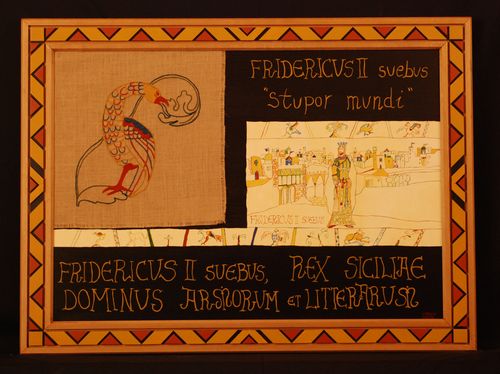 FRIDERICUS II suebus
"stupor mundi"
FRIDERICUS II SUEBUS
FRIDERICUS II SUEBUS, REX SICILIAE
DOMINUS ARSNORUM et LITTERARUM